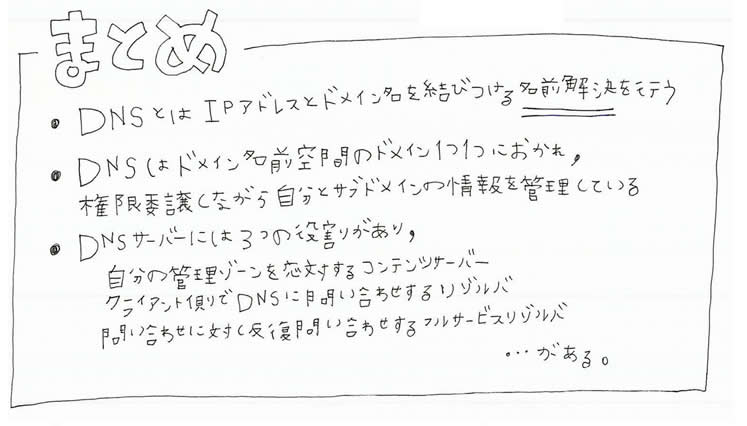 まとめ
• DNSとは IPアドレスとドメイン名を結びつける名前解決を行う
• DNSはドメイン名前空間のドメイン1つ1つにおかれ，
権限委譲しながら自分とサブドメインの情報を管理している
• DNSサーバーには3つの役割りがあり，
自分の管理ゾーンを応対するコンテンツサーバー
クライアント側でDNSに問い合わせするリゾルバ
問い合わせに対し反復問い合わせするフルサービスリゾルバ
…がある。